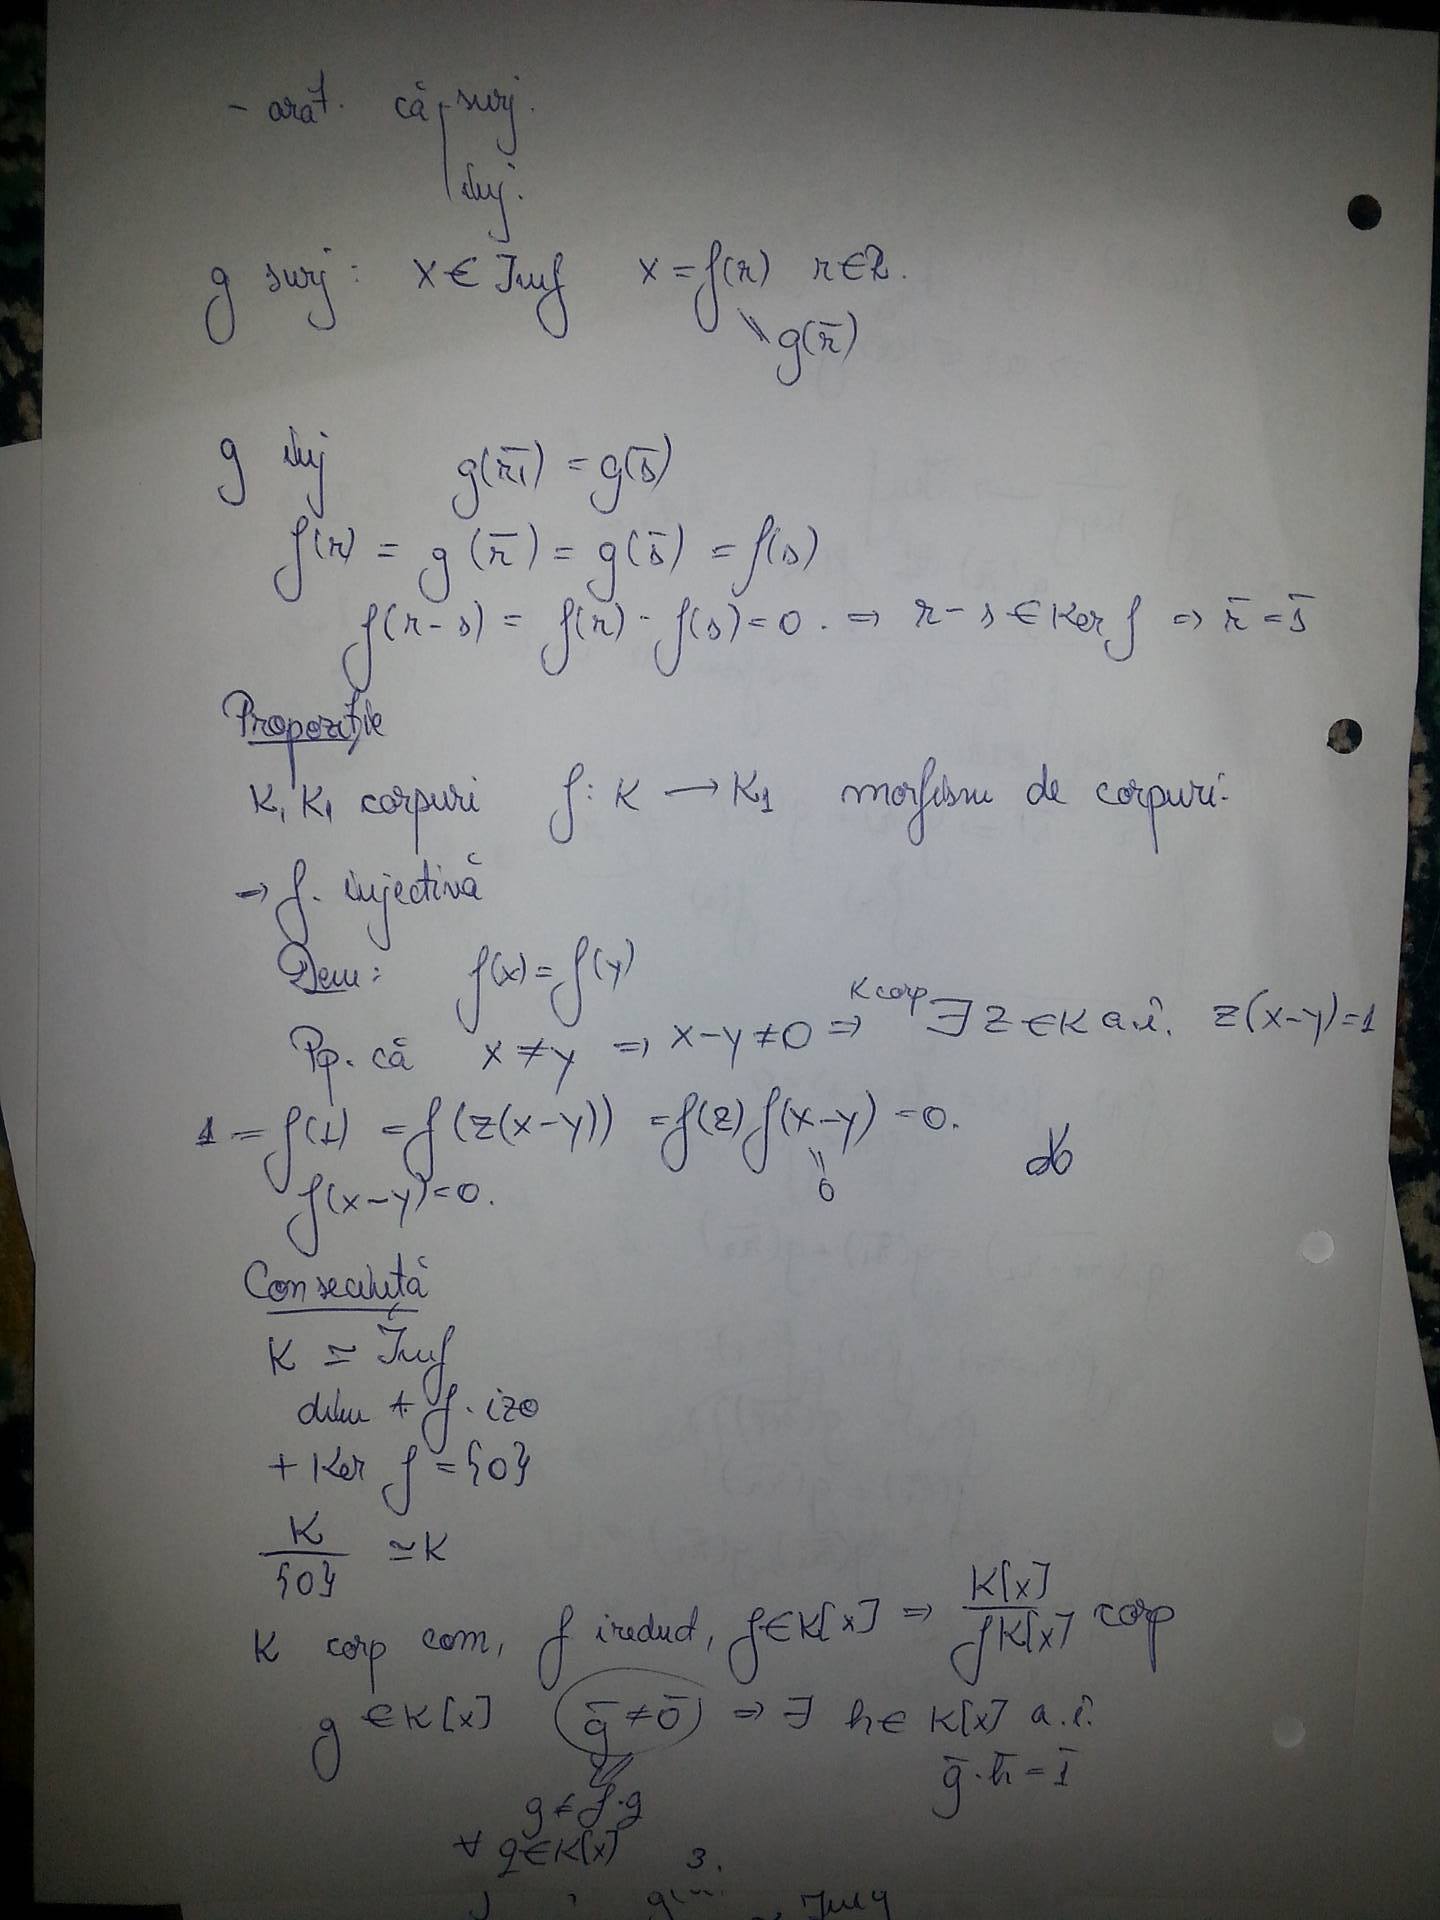 - arăt. că surj.
inj.
g surj: x ∈ Imf x = f(r) r∈R.
\\ g(r̄)
g inj g(r̄1) = g(s̄)
f(r) = g(r̄) = g(s̄) = f(s)
f(r-s) = f(r) - f(s) = 0. ⇒ r-s ∈ Ker f ⇒ r̄ = s̄
Propoziție
K, K1 corpuri f: K → K1 morfism de corpuri.
⇒ f. injectivă
Dem: f(x) = f(y)
Pp. că x ≠ y ⇒ x-y ≠ 0 ⇒ K corp ∃ z ∈ K a.î. z(x-y)=1
1 = f(1) = f(z(x-y)) = f(z) f(x-y) = 0.
\\ 0
f(x-y) = 0.
Consecință
K ≃ Imf
din + f. izo
+ Ker f = {0}
K / {0} ≃ K
K corp com, f ireduct, f∈K[x] ⇒ K[x] / fK[x] corp
g ∈ K[x] (ḡ ≠ 0̄) ⇒ ∃ h ∈ K[x] a.î.
ḡ·h̄ = 1̄
g ≠ f·g
∀ q∈K[x] 3.